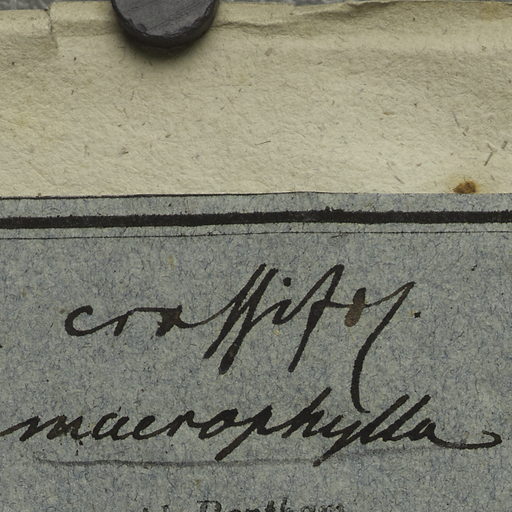 crassifol.
macrophylla
Bentham